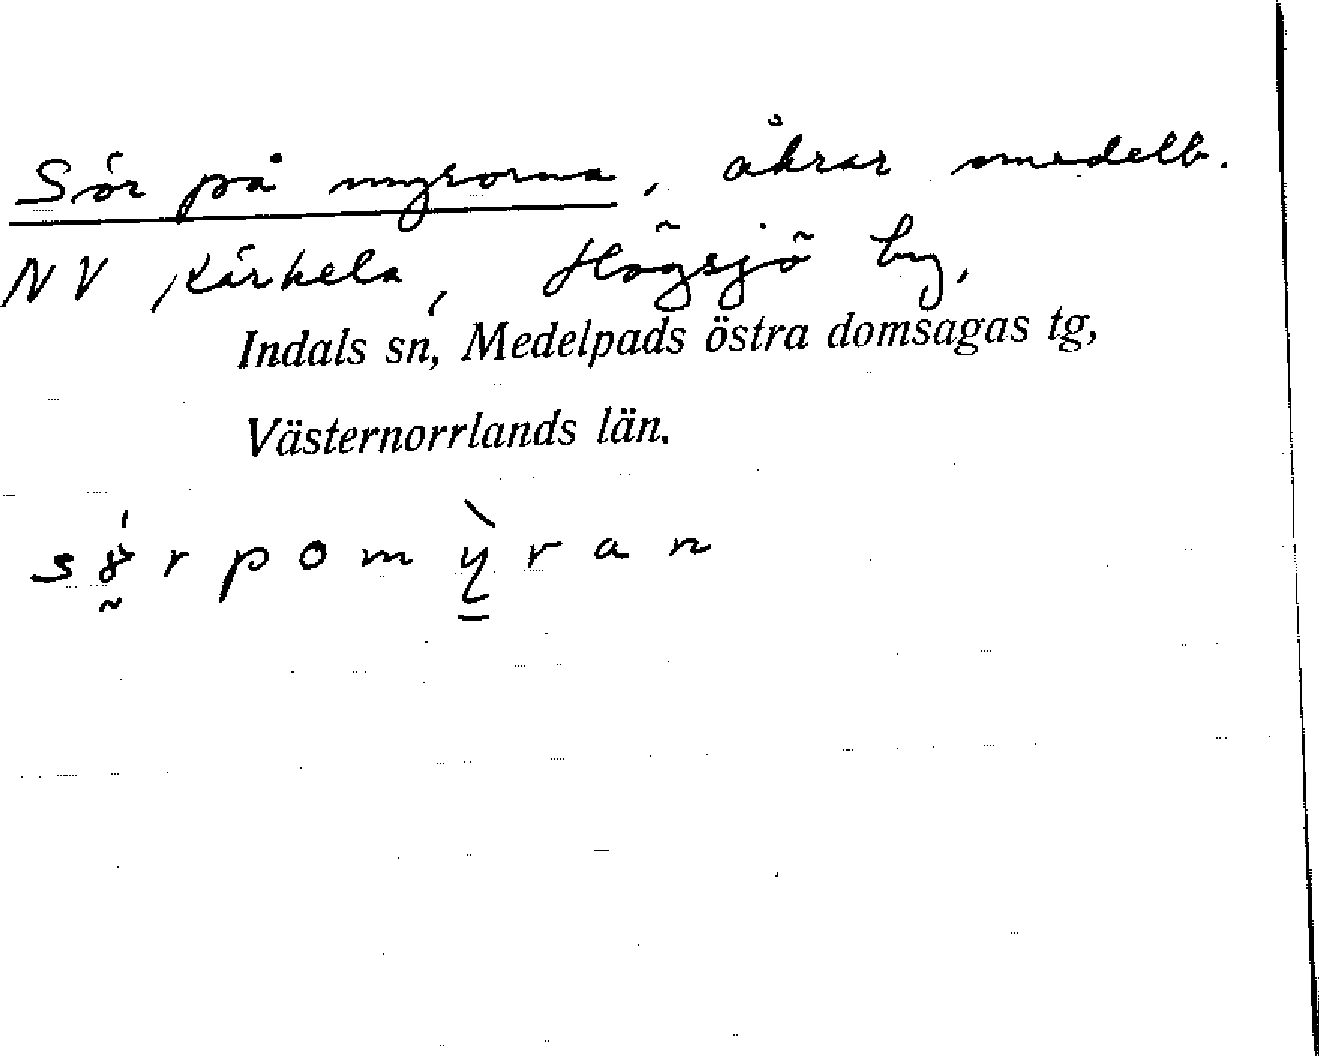 Sör på myrorna, åkrar medelb.
NV Kärkela, Högsjö by,
Indals sn, Medelpads östra domsagas tg,
Västernorrlands län.
pomỳ̠ran